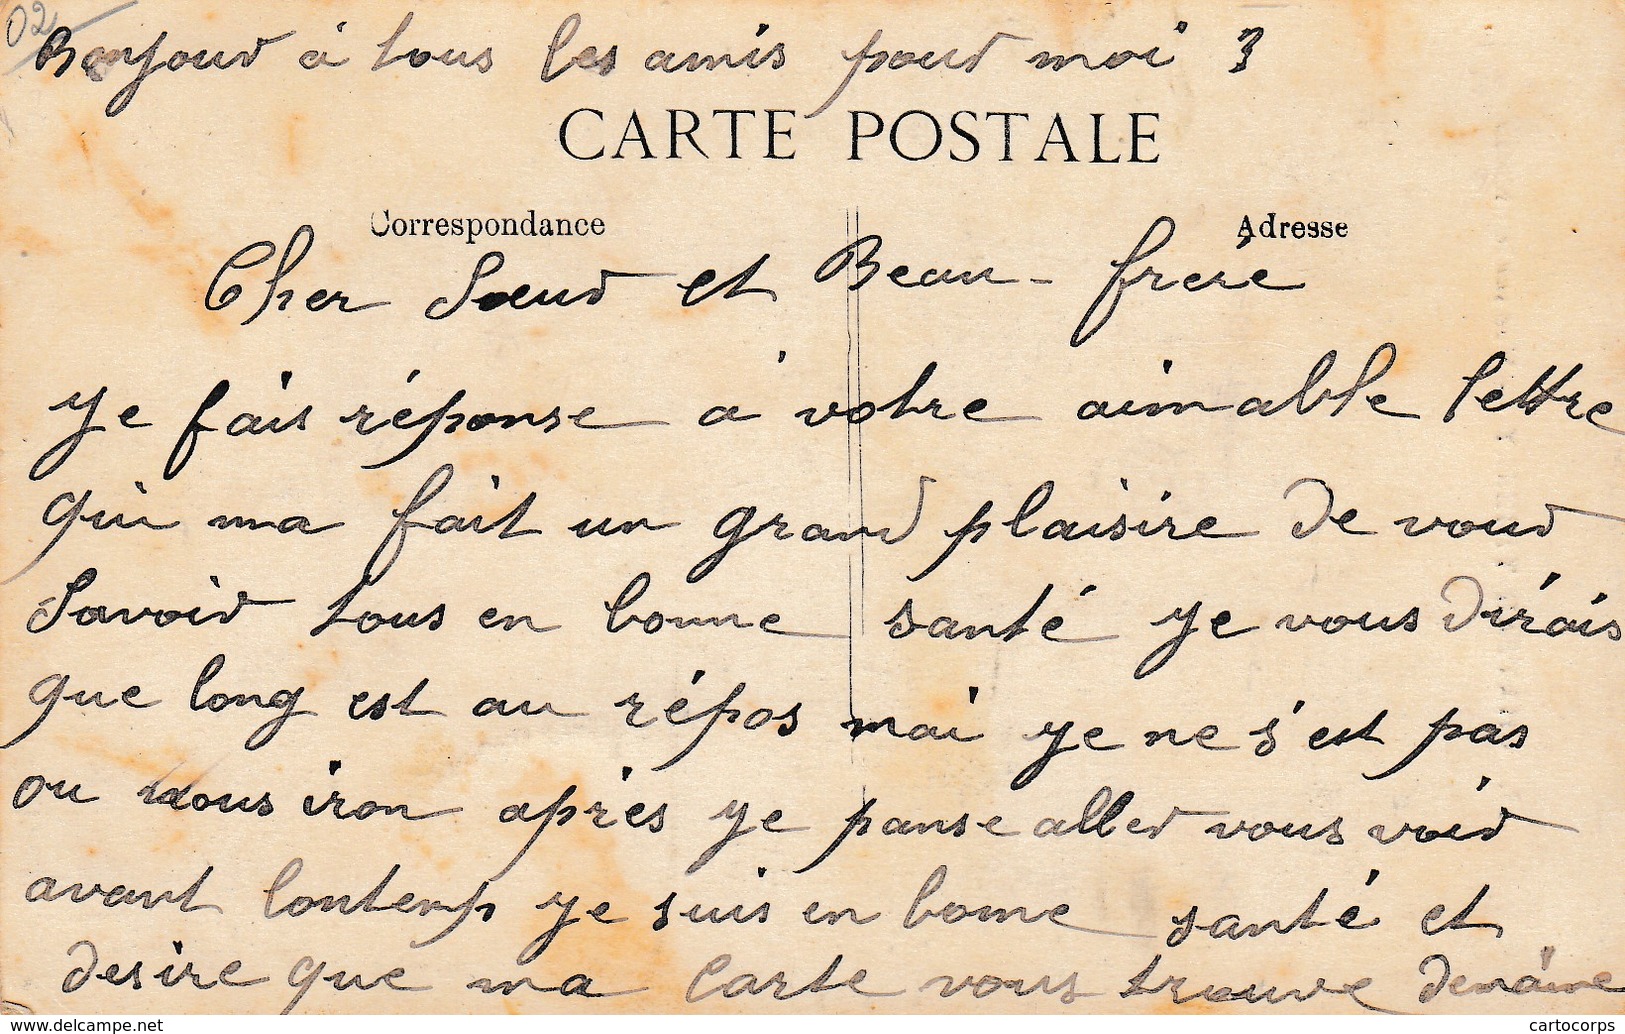 02
Bonjour à tous les amis pour moi 3
CARTE POSTALE
Correspondance
Adresse
Cher Soeur et Beau-frère
je fais réponse a votre aimable lettre
qui ma fait un grand plaisire de vour
Savoir tous en bonne santé je vous dirais
que long est au répos mai je ne s'est pas
ou nous iron après je panse aller vous voir
avant lontemp je suis en bonne santé et
desire que ma carte vous trouve de même
cartocorps
www.delcampe.net